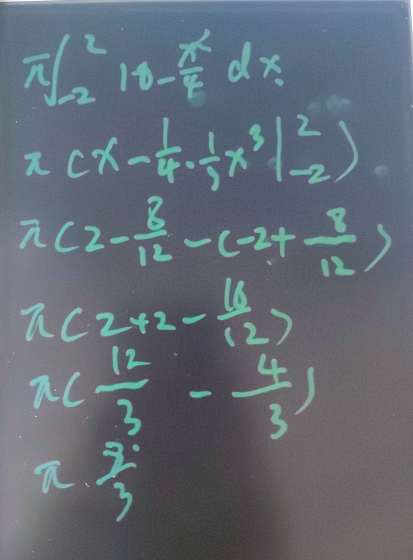 π∫₋₂² 1 - x²/4 dx
π(x - 1/4 · 1/3 x³ |₋₂²)
π(2 - 8/12 - (-2 + 8/12)
π(2+2 - 16/12)
π(12/3 - 4/3)
π 8/3